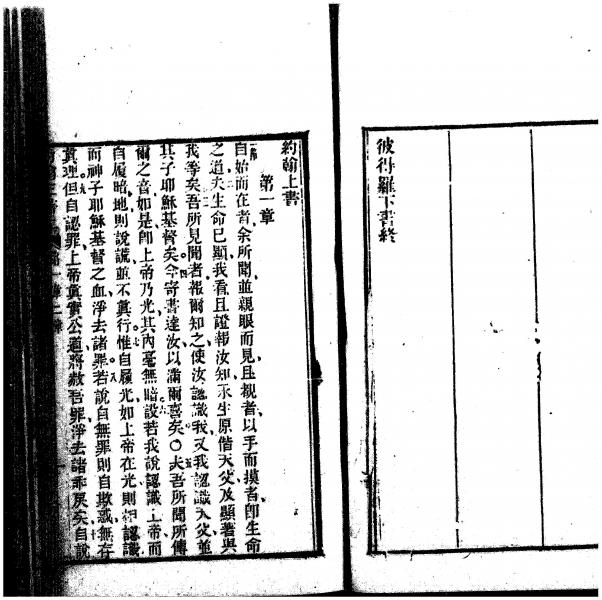 彼得羅下書終
約翰上書
第一章
自始而在者余所聞並親眼而見且覩者以手而摸者卽生命
之道夫生命已顯我看且證報汝知永生原偕天父及顯著與
我等矣吾所見聞者報爾知之使汝認識我又我認識天父並
其子耶穌基督矣今寄書達汝以滿爾喜矣〇夫吾所聞所傳
爾之音如是卽上帝乃光其內毫無暗設若我說認識上帝而
自履暗地則說謊並不眞行惟自履光如上帝在光則相認識
而神子耶穌基督之血淨去諸罪若說自無罪則自欺惑無存
眞理但自認罪上帝眞實公道將赦吾罪淨去諸乖戾矣自說